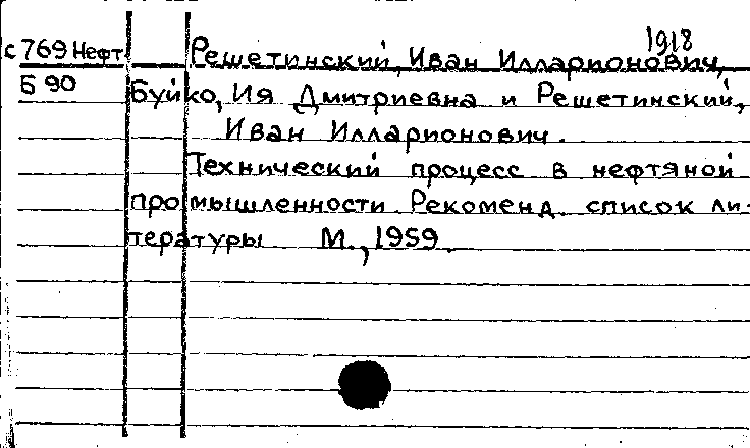 1918
с 769 Нефт Решетинский, Иван Илларионович,
Б 90 Буйко, Ия Дмитриевна и Решетинский,
Иван Илларионович.
Технический процесс в нефтяной
промышленности. Рекоменд. список ли-
тературы М., 1959.